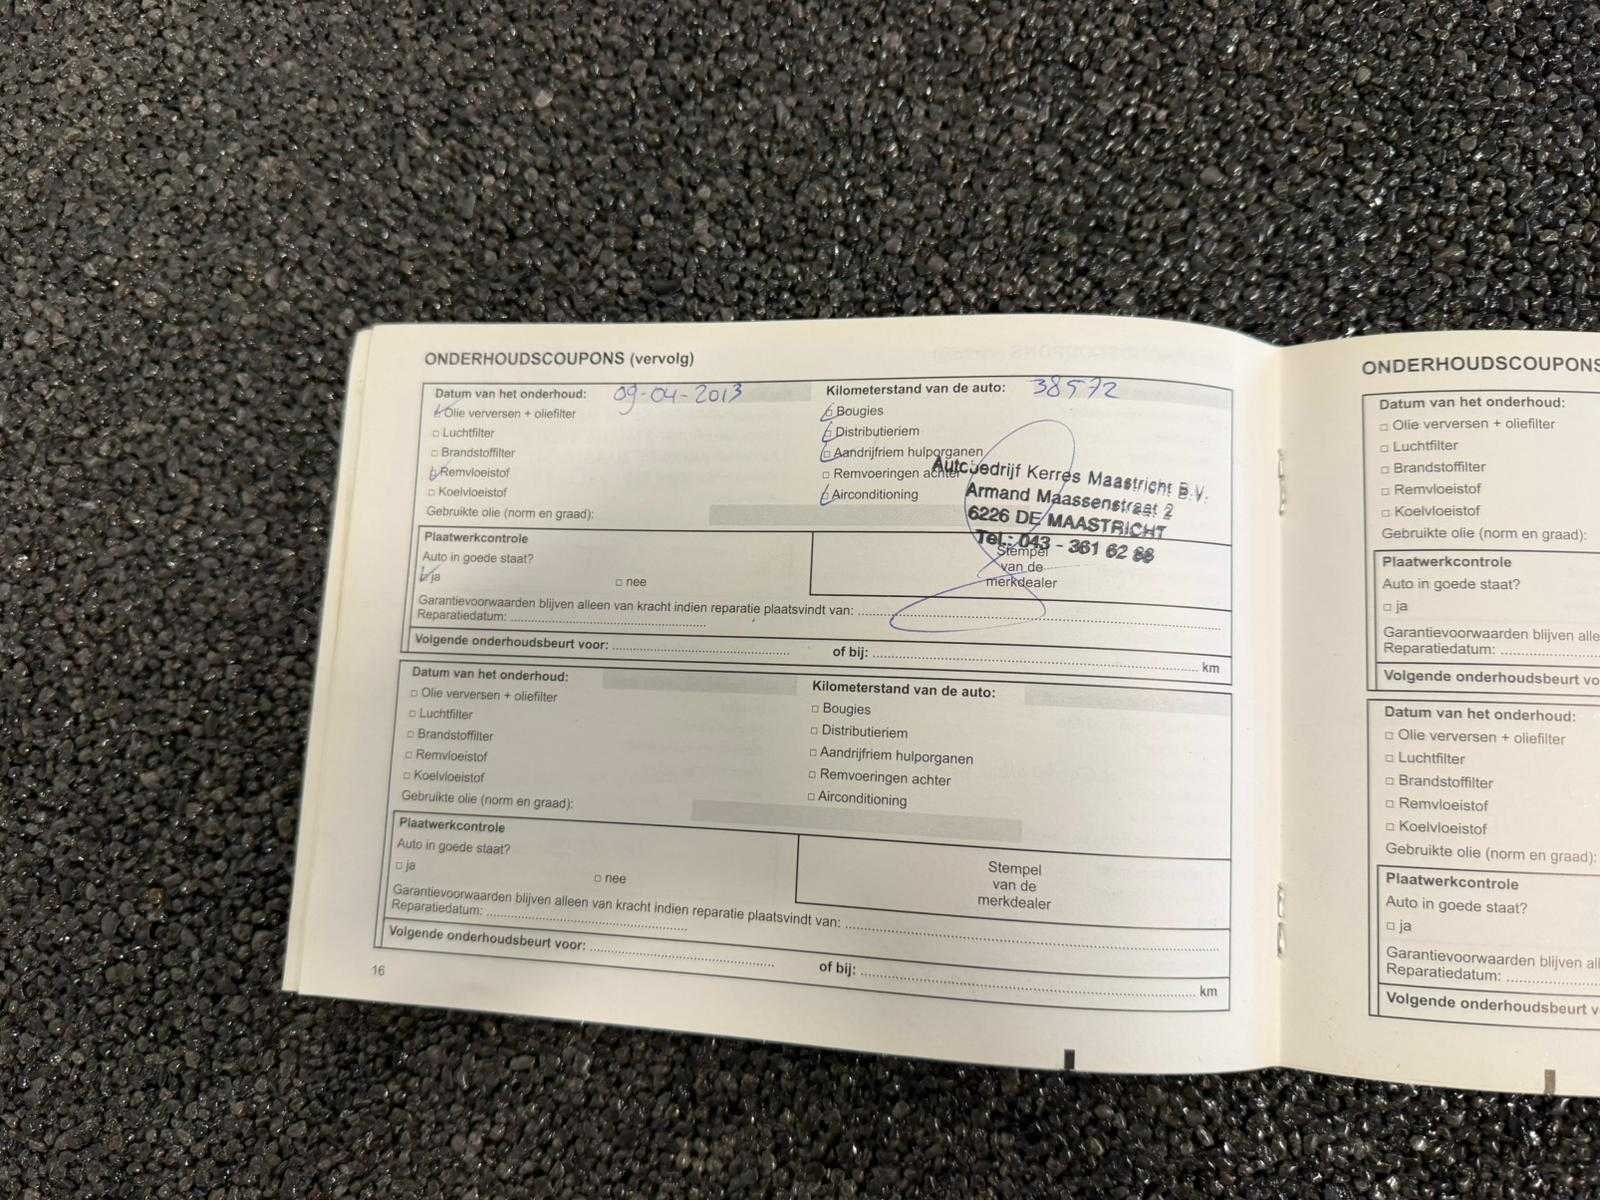 ONDERHOUDSCOUPONS (vervolg)
Datum van het onderhoud: 09-04-2013
Olie verversen + oliefilter
Luchtfilter
Brandstoffilter
Remvloeistof
Koelvloeistof
Gebruikte olie (norm en graad):
Kilometerstand van de auto: 38572
Bougies
Distributieriem
Aandrijfriem hulporganen
Remvoeringen achter
Airconditioning
Autobedrijf Kerres Maastricht B.V.
Armand Maassenstraat 2
6226 DE MAASTRICHT
Tel.: 043 - 361 62 88
Plaatwerkcontrole
Auto in goede staat?
ja
nee
Stempel
van de
merkdealer
Garantievoorwaarden blijven alleen van kracht indien reparatie plaatsvindt van:
Reparatiedatum:
Volgende onderhoudsbeurt voor: of bij: km
Datum van het onderhoud:
Olie verversen + oliefilter
Luchtfilter
Brandstoffilter
Remvloeistof
Koelvloeistof
Gebruikte olie (norm en graad):
Kilometerstand van de auto:
Bougies
Distributieriem
Aandrijfriem hulporganen
Remvoeringen achter
Airconditioning
Plaatwerkcontrole
Auto in goede staat?
ja
nee
Stempel
van de
merkdealer
Garantievoorwaarden blijven alleen van kracht indien reparatie plaatsvindt van:
Reparatiedatum:
Volgende onderhoudsbeurt voor: of bij: km
16
ONDERHOUDSCOUPONS
Datum van het onderhoud:
Olie verversen + oliefilter
Luchtfilter
Brandstoffilter
Remvloeistof
Koelvloeistof
Gebruikte olie (norm en graad):
Plaatwerkcontrole
Auto in goede staat?
ja
Garantievoorwaarden blijven alle
Reparatiedatum:
Volgende onderhoudsbeurt vo
Datum van het onderhoud:
Olie verversen + oliefilter
Luchtfilter
Brandstoffilter
Remvloeistof
Koelvloeistof
Gebruikte olie (norm en graad):
Plaatwerkcontrole
Auto in goede staat?
ja
Garantievoorwaarden blijven al
Reparatiedatum:
Volgende onderhoudsbeurt v